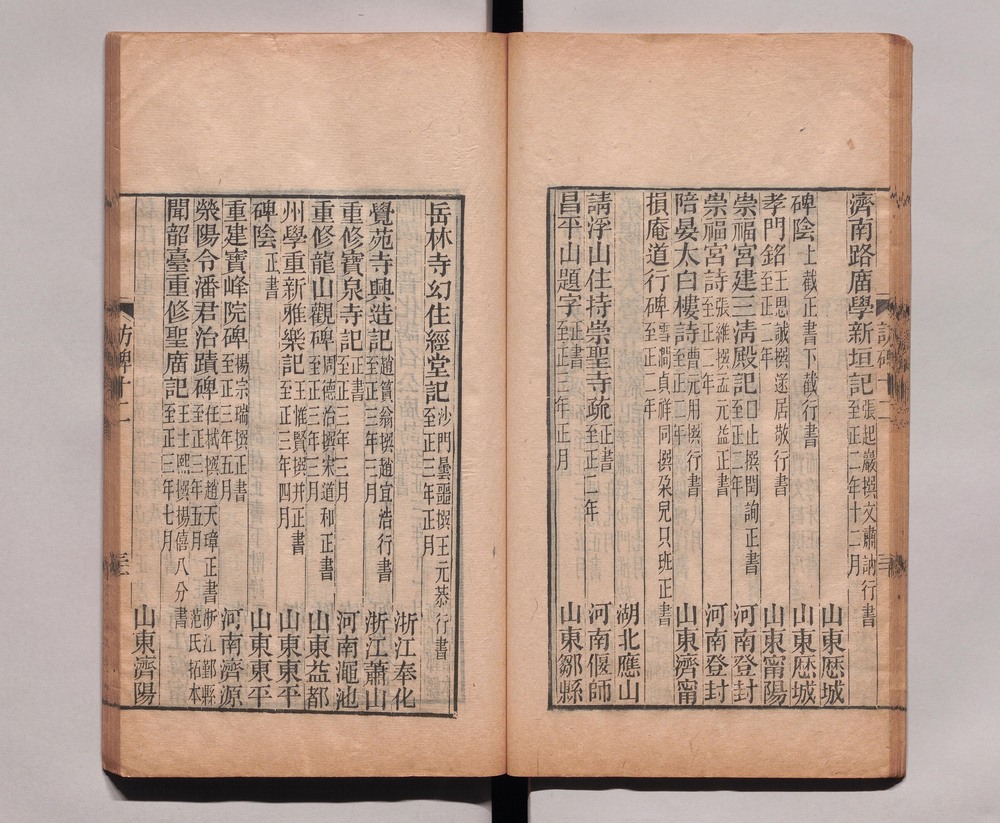 濟南路廟學新垣記 張起巖撰文肅訥行書 至正二年十二月
山東歷城
碑陰 上截正書下截行書 山東歷城
孝門銘 王思誠撰逯居敬行書 至正二年 山東甯陽
崇福宮建三清殿記 撰閏詢正書 至正二年 河南登封
崇福宮詩 張維撰孟元益正書 至正二年 河南登封
陪晏太白樓詩 曹元用撰行書 至正二年 山東濟甯
損庵道行碑 雪澗貞祥同撰朶兒只班正書 至正二年
湖北應山
請浮山住持崇聖寺疏 正書 至正二年 河南偃師
昌平山題字 正書 至正三年正月 山東鄒縣
訪碑十二
三
岳林寺幻住經堂記 沙門曇噩撰王元恭行書 至正三年正月
浙江奉化
覺苑寺興造記 趙篔翁撰趙宜浩行書 至正三年三月 浙江蕭山
重修寶泉寺記 正書 至正三年三月 河南澠池
重修龍山觀碑 周德洽撰宋道和正書 至正三年三月 山東益都
州學重新雅樂記 王惟賢撰并正書 至正三年四月 山東東平
碑陰 正書 山東東平
重建寶峰院碑 楊宗瑞撰正書 至正三年五月 河南濟源
滎陽令潘君治蹟碑 任拭撰趙天璋正書 至正三年五月 浙江鄞縣范氏拓本
聞韶臺重修聖廟記 王士熙撰楊僖八分書 至正三年七月
山東濟陽
訪碑十二
三